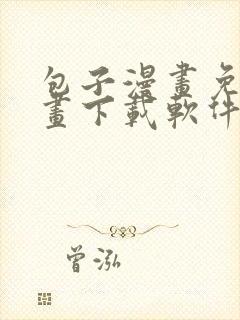 包子漫畫免
畫下載軟件
曾泓